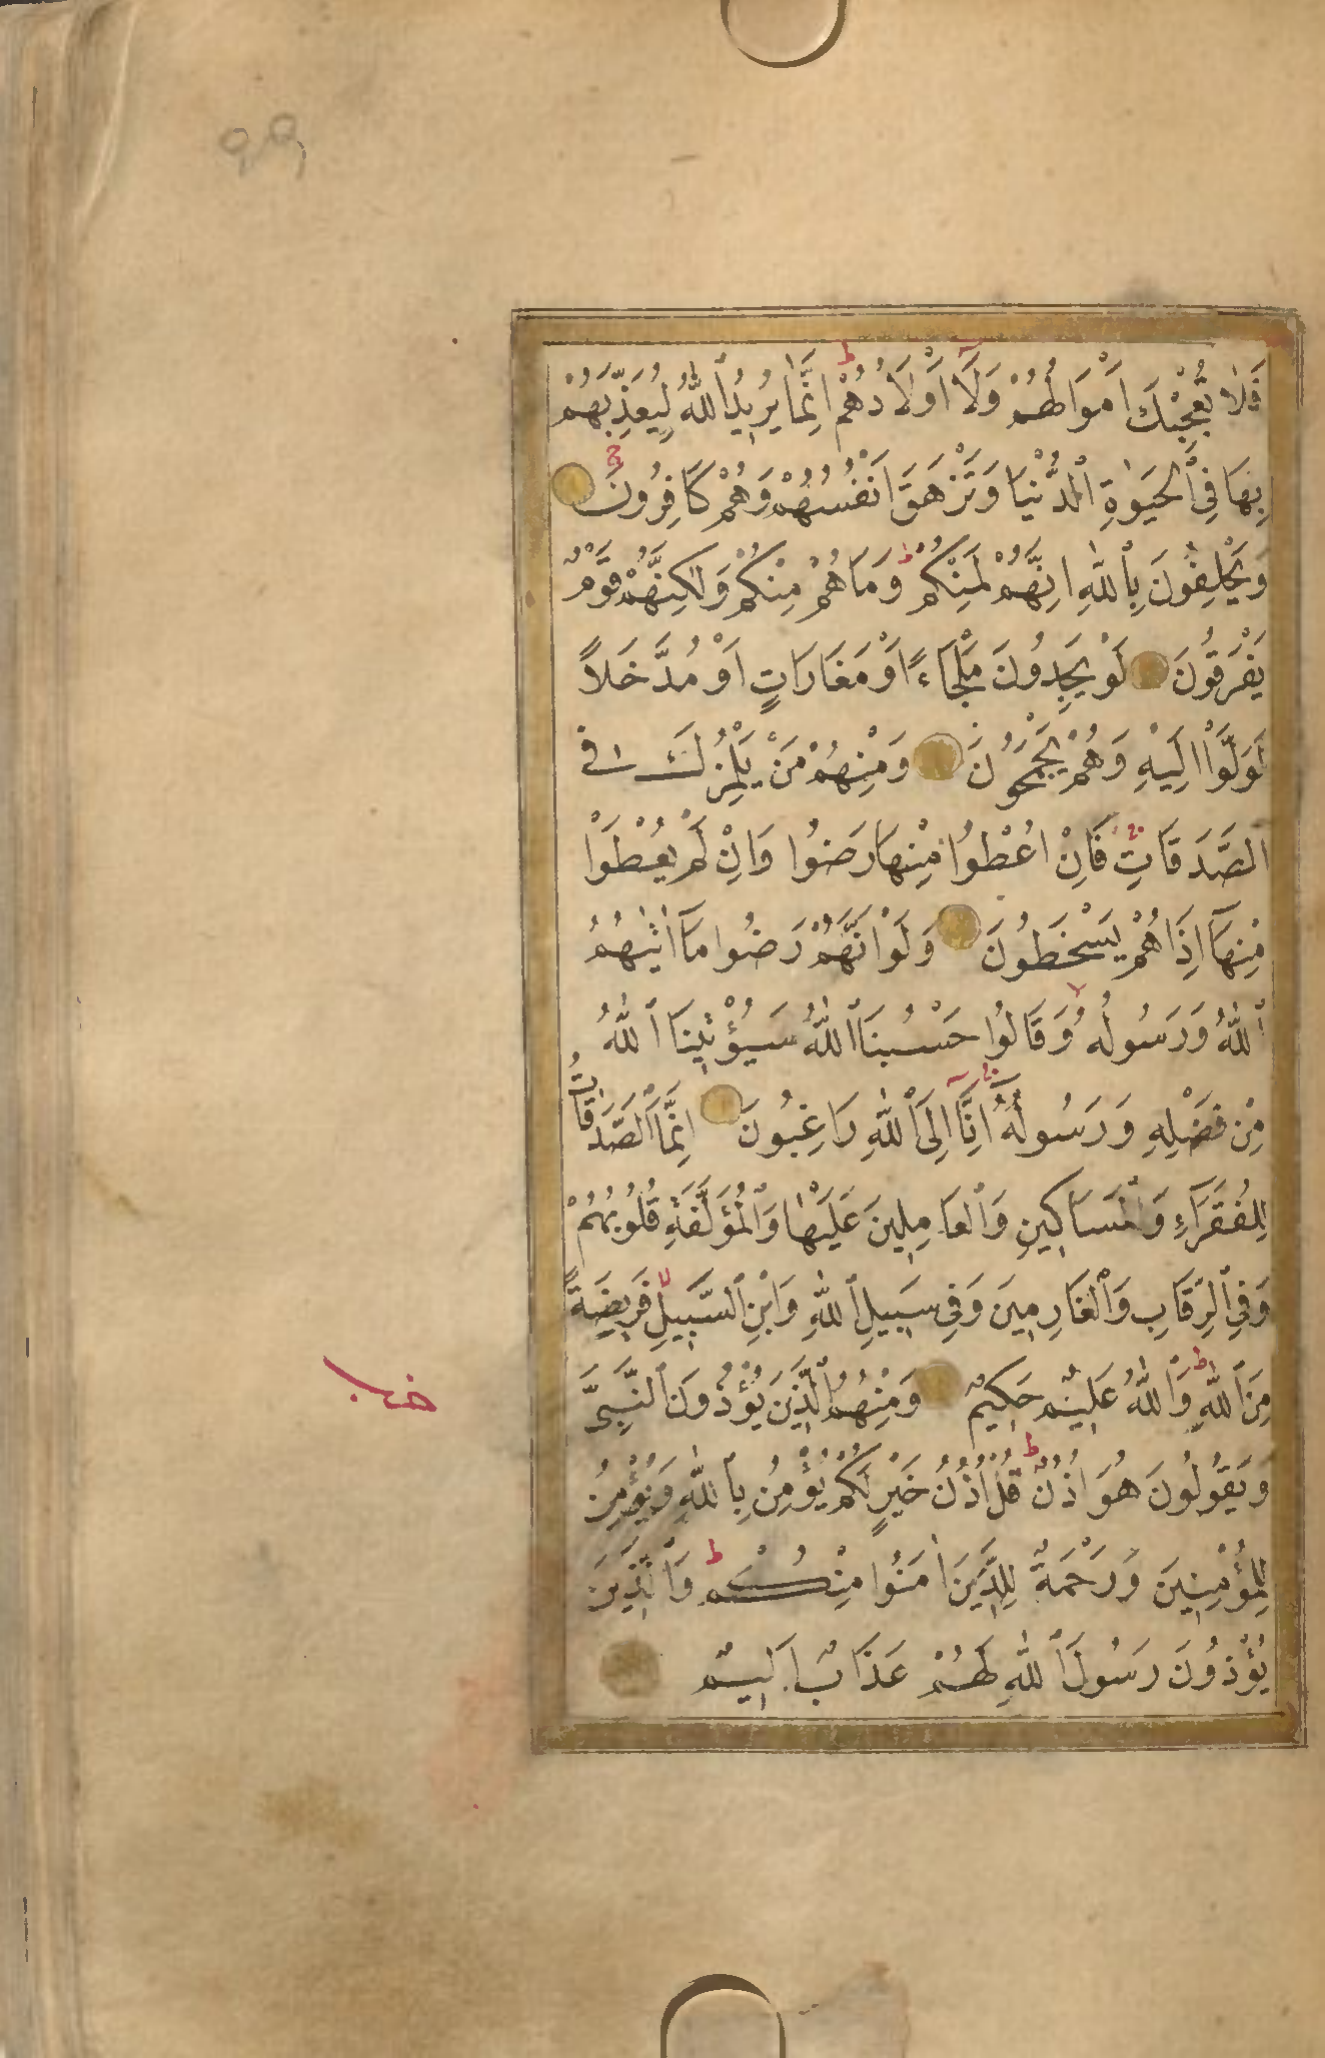 ٩٩
فَلَا تُعْجِبْكَ اَمْوَالُهُمْ وَلَٓا اَوْلَادُهُمْ ط اِنَّمَا يُرِيدُ ٱللّٰهُ لِيُعَذِّبَهُمْ
بِهَا فِى ٱلْحَيَوٰةِ ٱلدُّنْيَا وَتَزْهَقَ اَنْفُسُهُمْ وَهُمْ كَافِرُونَ
وَيَحْلِفُونَ بِٱللّٰهِ اِنَّهُمْ لَمِنْكُمْ ط وَمَا هُمْ مِنْكُمْ وَلٰكِنَّهُمْ قَوْمٌ
يَفْرَقُونَ لَوْ يَجِدُونَ مَلْجَاءً اَوْ مَغَارَاتٍ اَوْ مُدَّخَلًا
لَوَلَّوْا اِلَيْهِ وَهُمْ يَجْمَحُونَ وَمِنْهُمْ مَنْ يَلْمِزُكَ فِى
الصَّدَقَاتِ فَاِنْ اُعْطُوا مِنْهَا رَضُوا وَاِنْ لَمْ يُعْطَوْا
مِنْهَٓا اِذَا هُمْ يَسْخَطُونَ وَلَوْ اَنَّهُمْ رَضُوا مَٓا اٰتٰيهُمُ
ٱللّٰهُ وَرَسُولُهُ وَقَالُوا حَسْبُنَا ٱللّٰهُ سَيُؤْتِينَا ٱللّٰهُ
مِنْ فَضْلِهِ وَرَسُولُهُٓ اِنَّٓا اِلَى ٱللّٰهِ رَاغِبُونَ اِنَّمَا ٱلصَّدَقَاتُ
لِلْفُقَرَٓاءِ وَٱلْمَسَاكِينِ وَٱلْعَامِلِينَ عَلَيْهَا وَٱلْمُؤَلَّفَةِ قُلُوبُهُمْ
وَفِى ٱلرِّقَابِ وَٱلْغَارِمِينَ وَفِى سَبِيلِ ٱللّٰهِ وَٱبْنِ ٱلسَّبِيلِ لا فَرِيضَةً
مِنَ ٱللّٰهِ ط وَٱللّٰهُ عَلِيمٌ حَكِيمٌ وَمِنْهُمُ ٱلَّذِينَ يُؤْذُونَ ٱلنَّبِىَّ
وَيَقُولُونَ هُوَ اُذُنٌ ط قُلْ اُذُنُ خَيْرٍ لَكُمْ يُؤْمِنُ بِٱللّٰهِ وَيُؤْمِنُ
لِلْمُؤْمِنِينَ وَرَحْمَةٌ لِلَّذِينَ اٰمَنُوا مِنْكُمْ ط وَٱلَّذِينَ
يُؤْذُونَ رَسُولَ ٱللّٰهِ لَهُمْ عَذَابٌ اَلِيمٌ